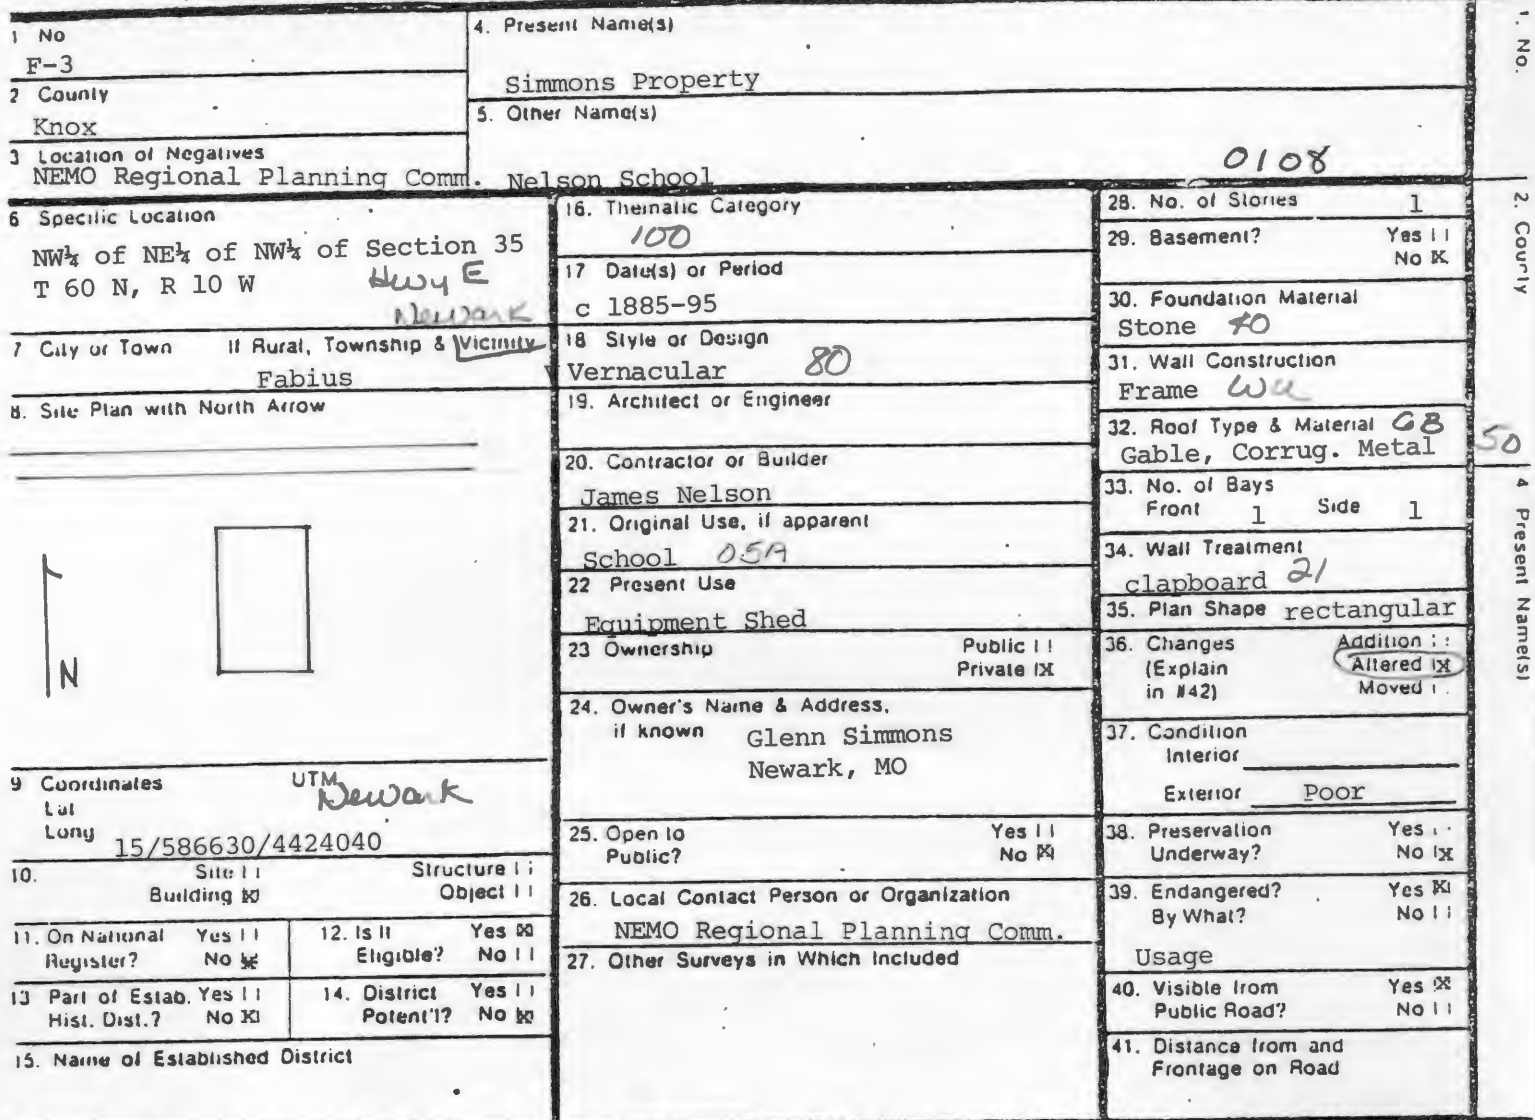 1 No
F-3
2 County
Knox
3 Location of Negatives
NEMO Regional Planning Comm.
4. Present Name(s)
Simmons Property
5. Other Name(s)
Nelson School
0108
6 Specific Location
NW¼ of NE¼ of NW¼ of Section 35
T 60 N, R 10 W Hwy E
Newark
7 City or Town If Rural, Township & Vicinity
Fabius
8. Site Plan with North Arrow
N
9 Coordinates UTM Newark
Lat
Long
15/586630/4424040
10. Site Structure
Building X Object
11. On National Register? Yes No X
12. Is It Eligible? Yes X No
13 Part of Estab. Hist. Dist.? Yes No X
14. District Potent'l? Yes No X
15. Name of Established District
16. Thematic Category
100
17 Date(s) or Period
c 1885-95
18 Style or Design
Vernacular 80
19. Architect or Engineer
20. Contractor or Builder
James Nelson
21. Original Use, if apparent
School 05A
22 Present Use
Equipment Shed
23 Ownership Public
Private X
24. Owner's Name & Address,
if known Glenn Simmons
Newark, MO
25. Open to Yes
Public? No X
26. Local Contact Person or Organization
NEMO Regional Planning Comm.
27. Other Surveys in Which Included
28. No. of Stories 1
29. Basement? Yes
No X
30. Foundation Material
Stone 40
31. Wall Construction
Frame
32. Roof Type & Material GB
Gable, Corrug. Metal 50
33. No. of Bays
Front 1 Side 1
34. Wall Treatment
clapboard 21
35. Plan Shape rectangular
36. Changes Addition
(Explain Altered X
in #42) Moved
37. Condition
Interior
Exterior Poor
38. Preservation Yes
Underway? No X
39. Endangered? Yes X
By What? No
Usage
40. Visible from Yes X
Public Road? No
41. Distance from and
Frontage on Road
1. No.
2. County
4 Present Name(s)